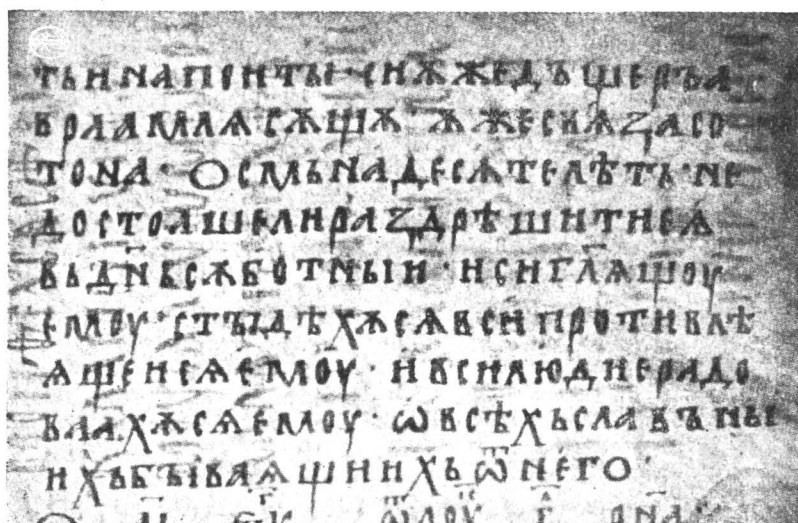 тьи напоитьі · сиѫ же дъщеръ а
враамлѧ сѫщѫ · ѫже свѧза со
тона · осмьнадесѧте лѣть · не
достоꙗше ли раꙁдрѣшити сѧ
вь дн҃ь сѫботныи · и си гл҃ѧщоу
емоу · стыдѣхѫ сѧ вси противлѣ
ѧщеи сѧ емоу · и вси людие радо
ваахѫ сѧ емоу · ѡ всѣхь славъны
ихъ бъівaѧщиихь ѿ него ·